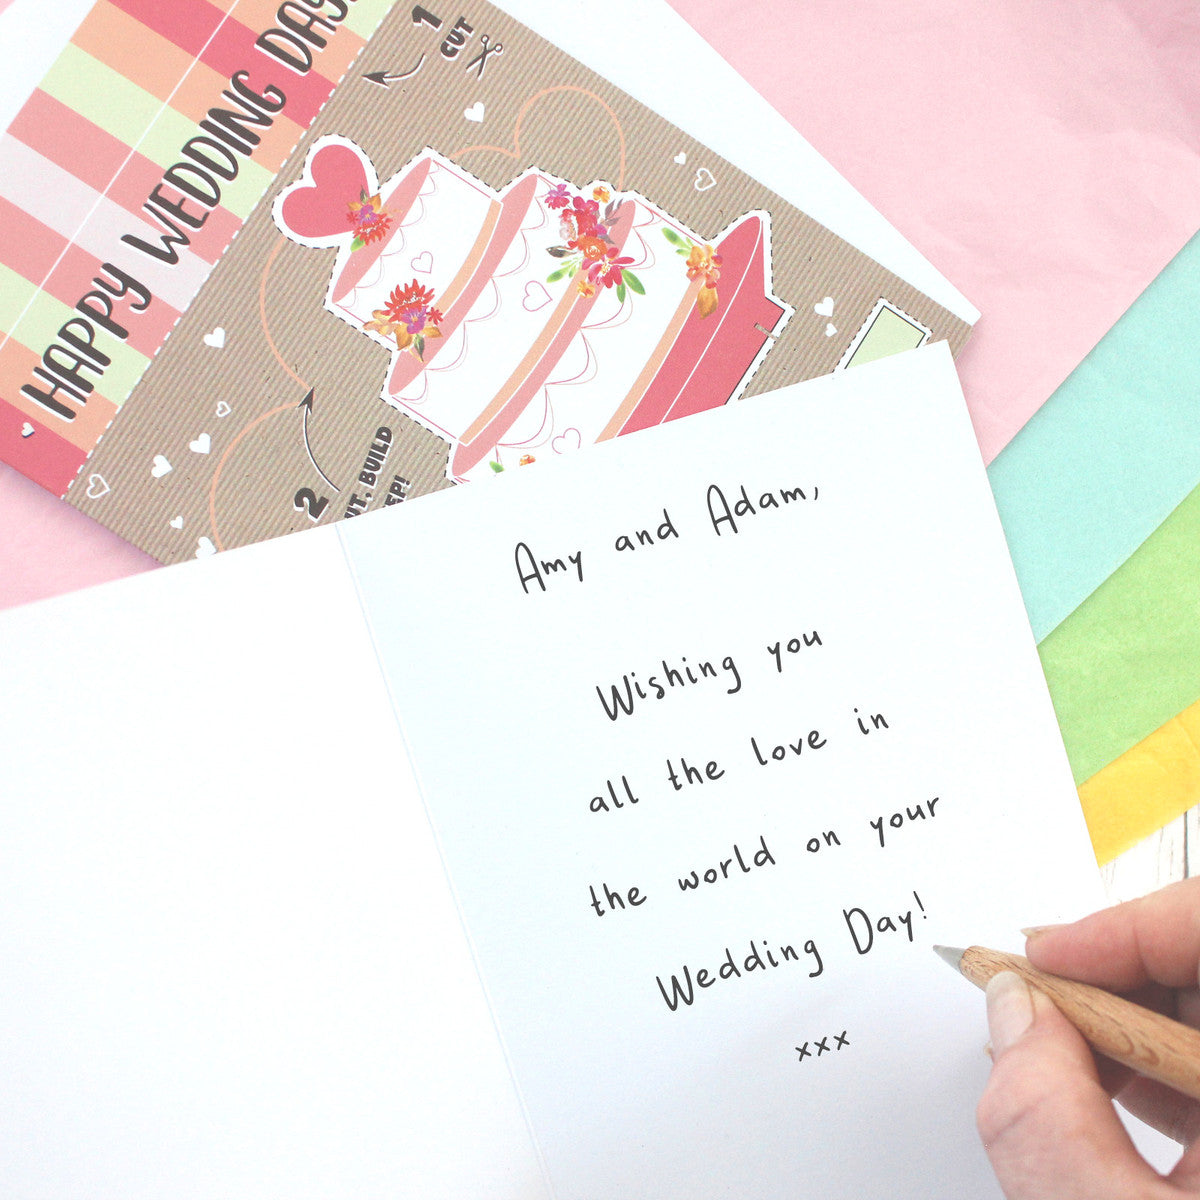 HAPPY WEDDING DAY
1
CUT
2
BUILD
Amy and Adam,
Wishing you
all the love in
the world on your
Wedding Day!
xxx